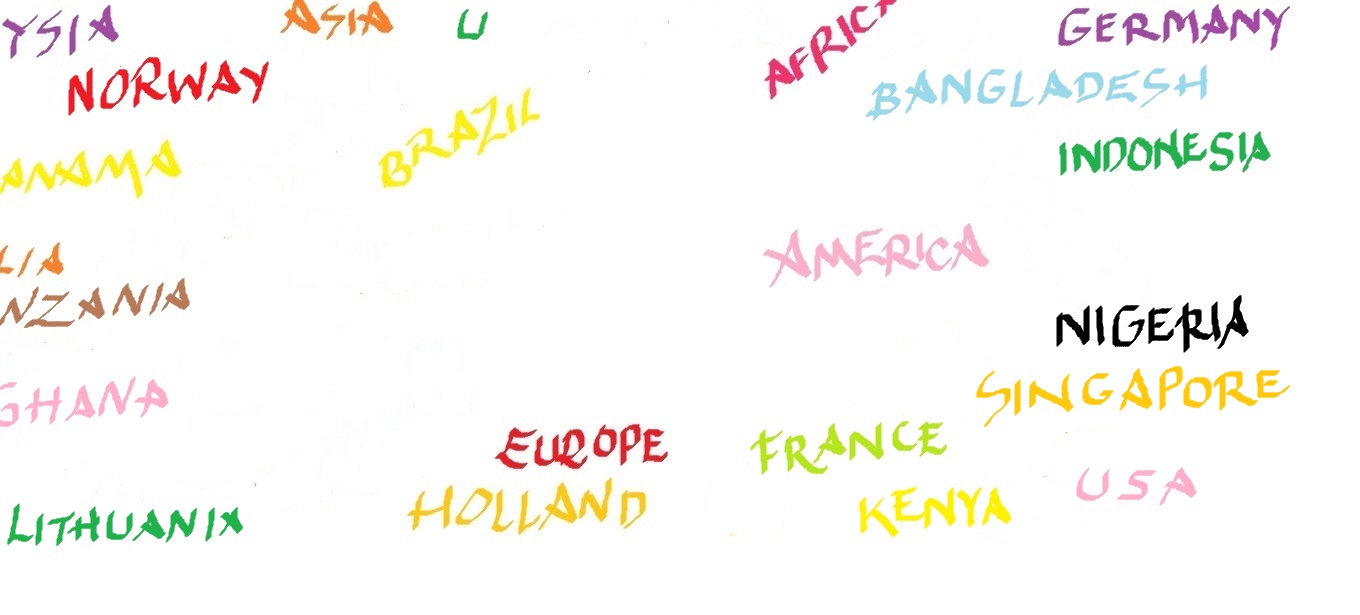 YSIA
ASIA
U
AFRICA
GERMANY
NORWAY
BANGLADESH
BRAZIL
INDONESIA
ANAMA
AMERICA
LIA
NZANIA
NIGERIA
GHANA
SINGAPORE
EUROPE
FRANCE
HOLLAND
KENYA
USA
LITHUANIA